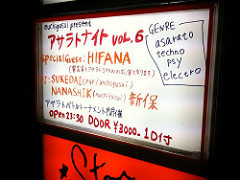 muchigusai present
アサラトナイト vol.6
Special Guest: HIFANA
DJ: SUKEDAI
NANASHIK
新保
アサラトバトルトーナメント同時開催
OPEN 23:30 DOOR ¥3000- 1D付
GENRE
asarato
techno
psy
electro